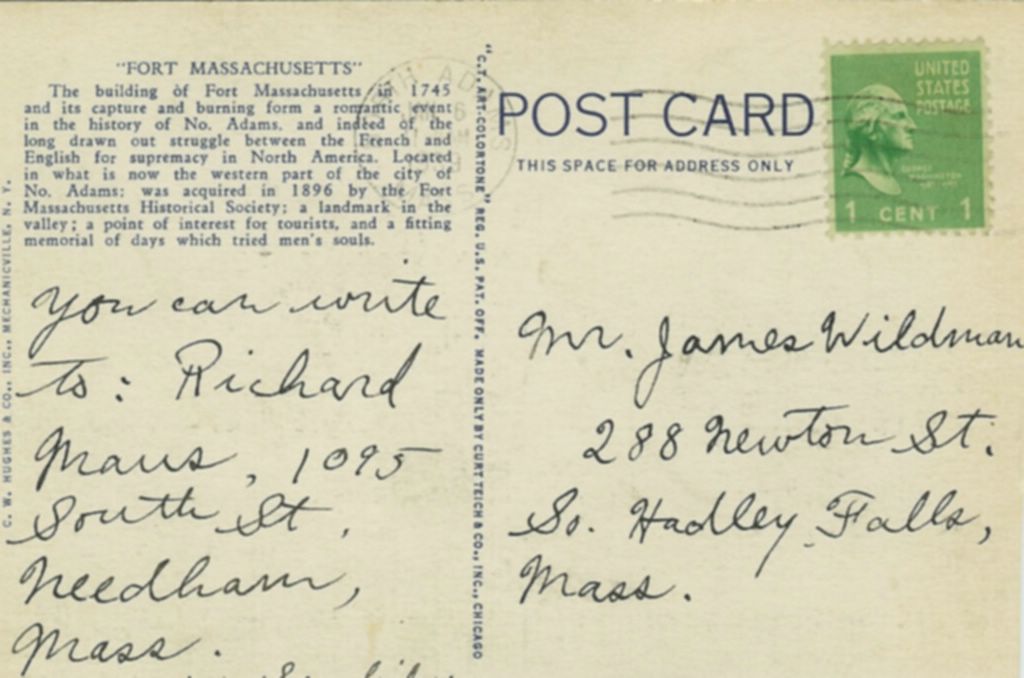 "FORT MASSACHUSETTS"
The building of Fort Massachusetts in 1745
and its capture and burning form a romantic event
in the history of No. Adams, and indeed of the
long drawn out struggle between the French and
English for supremacy in North America. Located
in what is now the western part of the city of
No. Adams; was acquired in 1896 by the Fort
Massachusetts Historical Society; a landmark in the
valley; a point of interest for tourists, and a fitting
memorial of days which tried men's souls.
C. W. HUGHES & CO., INC., MECHANICVILLE, N. Y.
You can write
to: Richard
Maus, 1095
South St,
Needham,
Mass.
"C.T. ART-COLORTONE" REG. U.S. PAT. OFF. MADE ONLY BY CURT TEICH & CO., INC., CHICAGO
POST CARD
THIS SPACE FOR ADDRESS ONLY
UNITED
STATES
POSTAGE
GEORGE
WASHINGTON
1 CENT 1
Mr. James Wildman
288 Newton St.
So. Hadley Falls,
Mass.